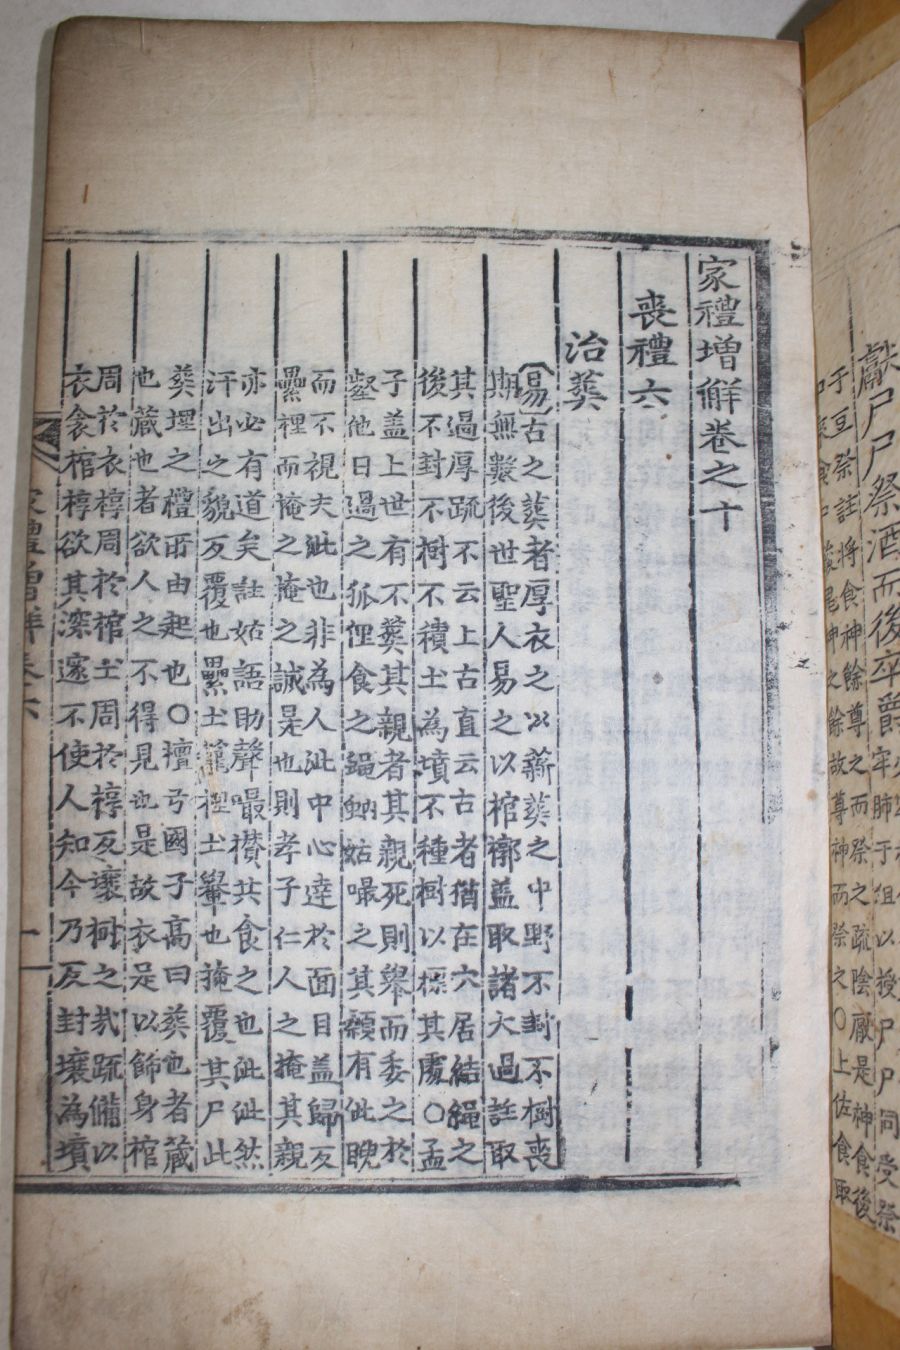 家禮增解卷之十
喪禮六
治葬
(易)古之葬者厚衣之以薪葬之中野不封不樹喪
期無數後世聖人易之以棺槨盖取諸大過註取
其過厚疏不云上古直云古者猶在穴居結繩之
後不封不樹不積土為墳不種樹以標其處〇孟
子盖上世有不葬其親者其親死則舉而委之於
壑他日過之狐狸食之蝇蚋姑嘬之其顙有泚睨
而不視夫泚也非為人泚中心逹於面目盖歸反
虆裡而掩之掩之誠是也則孝子仁人之掩其親
亦必有道矣註姑語助聲嘬攅共食之也泚泚然
汗出之貌反覆也虆土籠裡土轝也掩覆其尸此
葬埋之禮所由起也〇檀弓國子高曰葬也者藏
也藏也者欲人之不得見也是故衣足以飾身棺
周於衣椁周於棺土周於椁反壤樹之㢤疏備以
衣衾棺椁欲其深邃不使人知今乃反封壤為墳
家禮增解卷六
一
獻尸尸祭酒而後卒爵